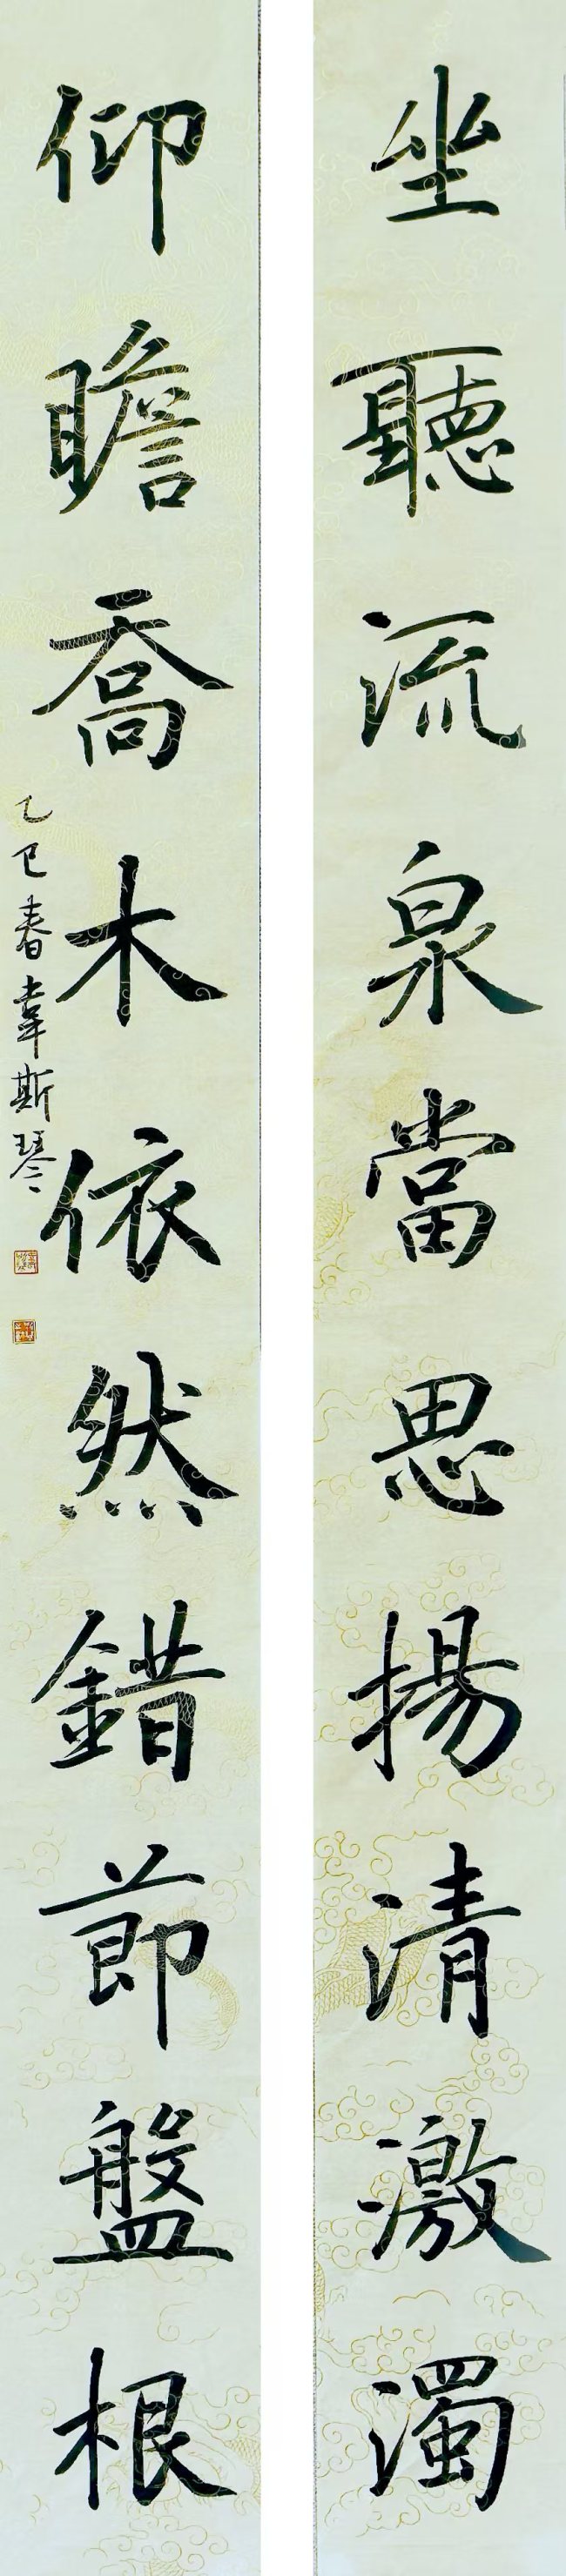 坐聽流泉當思揚清激濁
仰瞻喬木依然錯節盤根
乙巳春韋斯琴